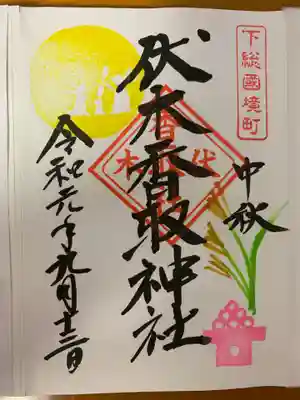 下総國境町
中秋
伏木香取神社
伏木香取
令和元年九月十三日